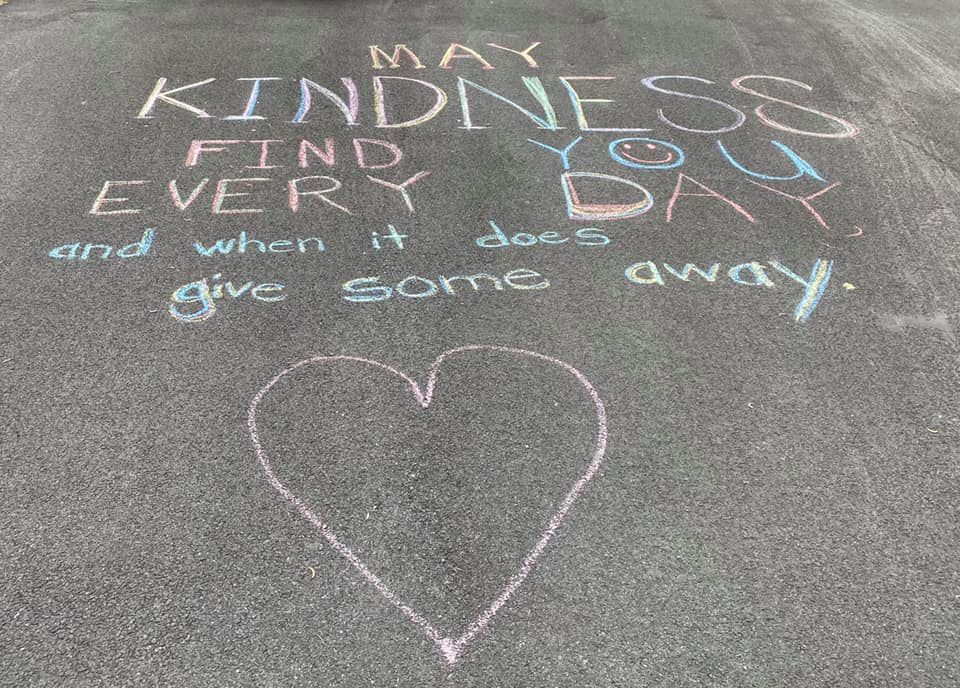 MAY
KINDNESS
FIND YOU
EVERY DAY,
and when it does
give some away.